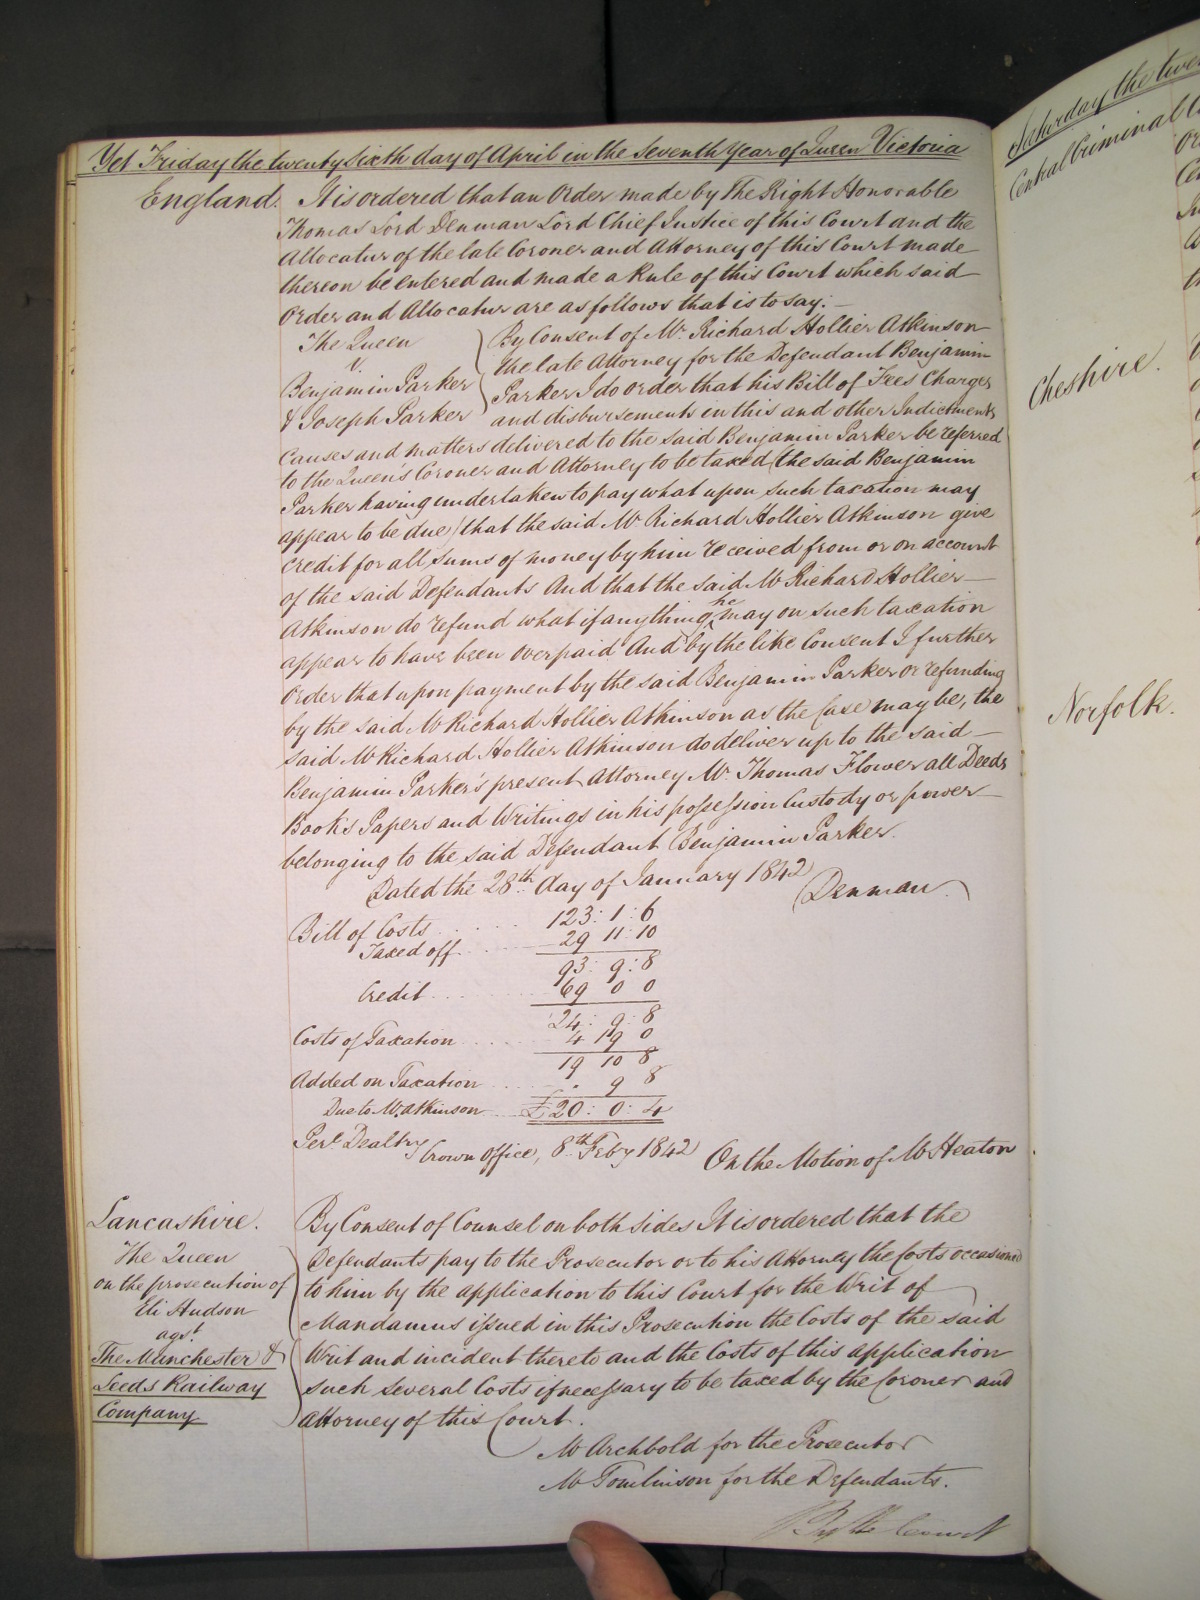 Yet Friday the twenty sixth day of April in the Seventh Year of Queen Victoria
England. It is ordered that an Order made by The Right Honorable
Thomas Lord Denman Lord Chief Justice of this Court and the
Allocatur of the late Coroner and Attorney of this Court made
thereon be entered and made a Rule of this Court which said
Order and Allocatur are as follows that is to say: —
The Queen
v.
Benjamin Parker
& Joseph Parker
By Consent of Mr. Richard Hollier Atkinson
the late Attorney for the Defendant Benjamin
Parker I do order that his Bill of Fees Charges
and disbursements in this and other Indictments
Causes and matters delivered to the said Benjamin Parker be referred
to the Queen's Coroner and Attorney to be taxed (the said Benjamin
Parker having undertaken to pay what upon such taxation may
appear to be due) that the said Mr Richard Hollier Atkinson give
credit for all sums of money by him received from or on account
of the said Defendants And that the said Mr Richard Hollier —
Atkinson do refund what if anything he may on such taxation
appear to have been overpaid And by the like Consent I further
Order that upon payment by the said Benjamin Parker or refunding
by the said Mr Richard Hollier Atkinson as the Case may be, the
said Mr Richard Hollier Atkinson do deliver up to the said —
Benjamin Parker's present Attorney Mr. Thomas Flower all Deeds
Books Papers and Writings in his possession Custody or power —
belonging to the said Defendant Benjamin Parker.
Dated the 28th day of January 1842 Denman
Bill of Costs 123: 1: 6
Taxed off 29 11 10
93: 9: 8
Credit 69 0 0
24: 9: 8
Costs of Taxation 4 19 0
19 10 8
Added on Taxation . 9 8
Due to Mr. Atkinson £20: 0: 4
Per C. Dealtry Crown Office, 8th Feby 1842 On the Motion of Mr Heaton
Lancashire.
The Queen
on the prosecution of
Eli Hudson
agst
The Manchester &
Leeds Railway
Company
By Consent of Counsel on both sides It is ordered that the
Defendants pay to the Prosecutor or to his Attorney the Costs occasioned
to him by the application to this Court for the Writ of
Mandamus issued in this Prosecution the Costs of the said
Writ and incident thereto and the Costs of this application
such several Costs if necessary to be taxed by the Coroner and
Attorney of this Court.
Mr Archbold for the Prosecutor
Mr Tomlinson for the Defendants.
By the Court
Saturday the
Central Criminal
Cheshire.
Norfolk.